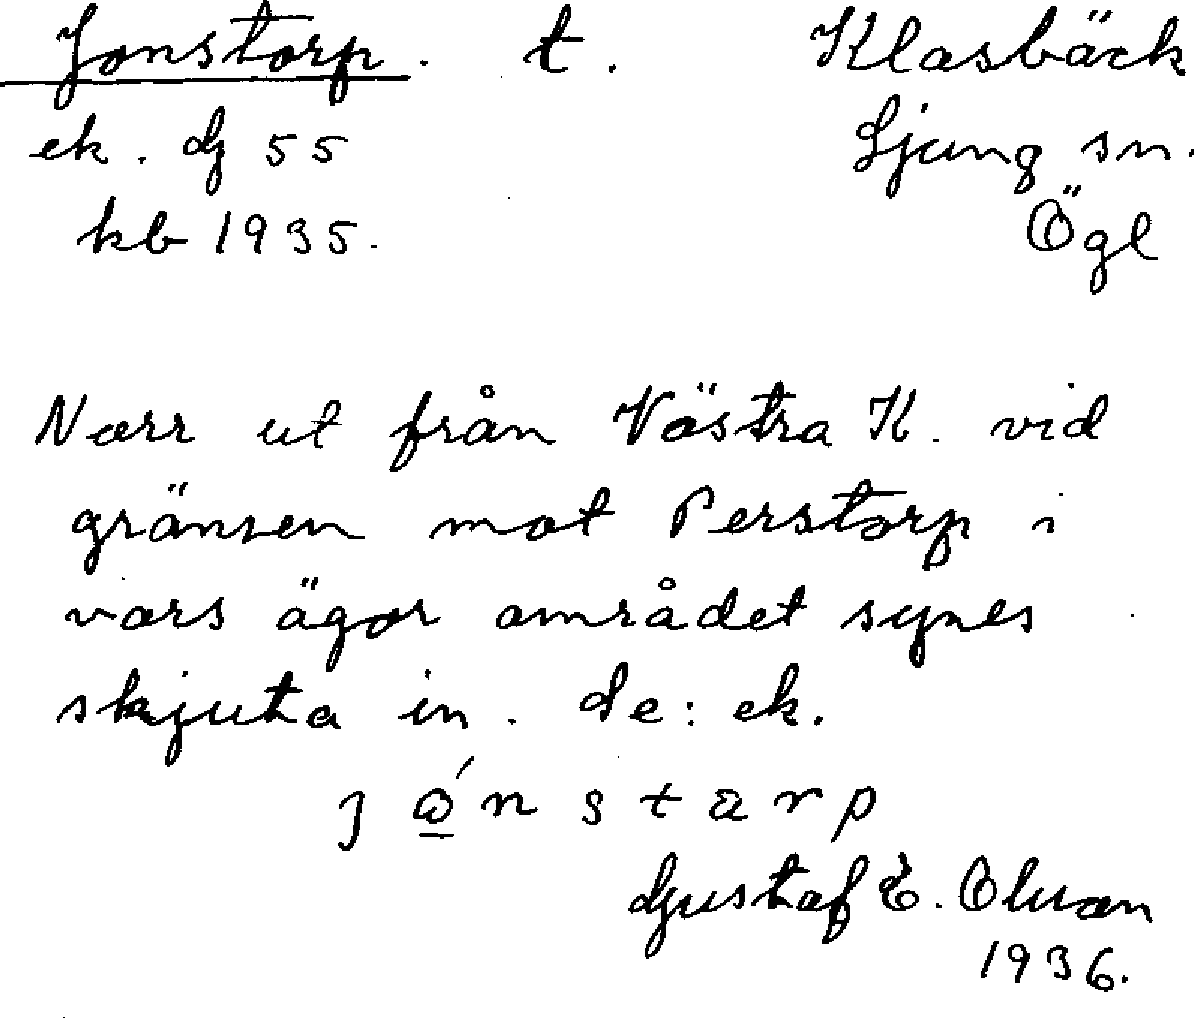 Jonstorp. t. Klasbäck
ek. dj 55 Ljung sn.
kb 1935. Ögl
Norr ut från Västra K. vid
gränsen mot Perstorp i
vars ägor området synes
skjuta in. de: ek.
jó̲nstarp
Gustaf E. Olson
1936.